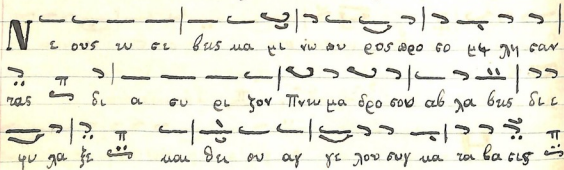 Νε ους ευ σε βεις κα μι νω πυ ρος προ σο μι λη σαν
τας δι α συ ρι ζον πνευ μα δρο σου αβ λα βεις δι ε
φυ λα ξε και θει ου αγ γε λου συγ κα τα βα σις